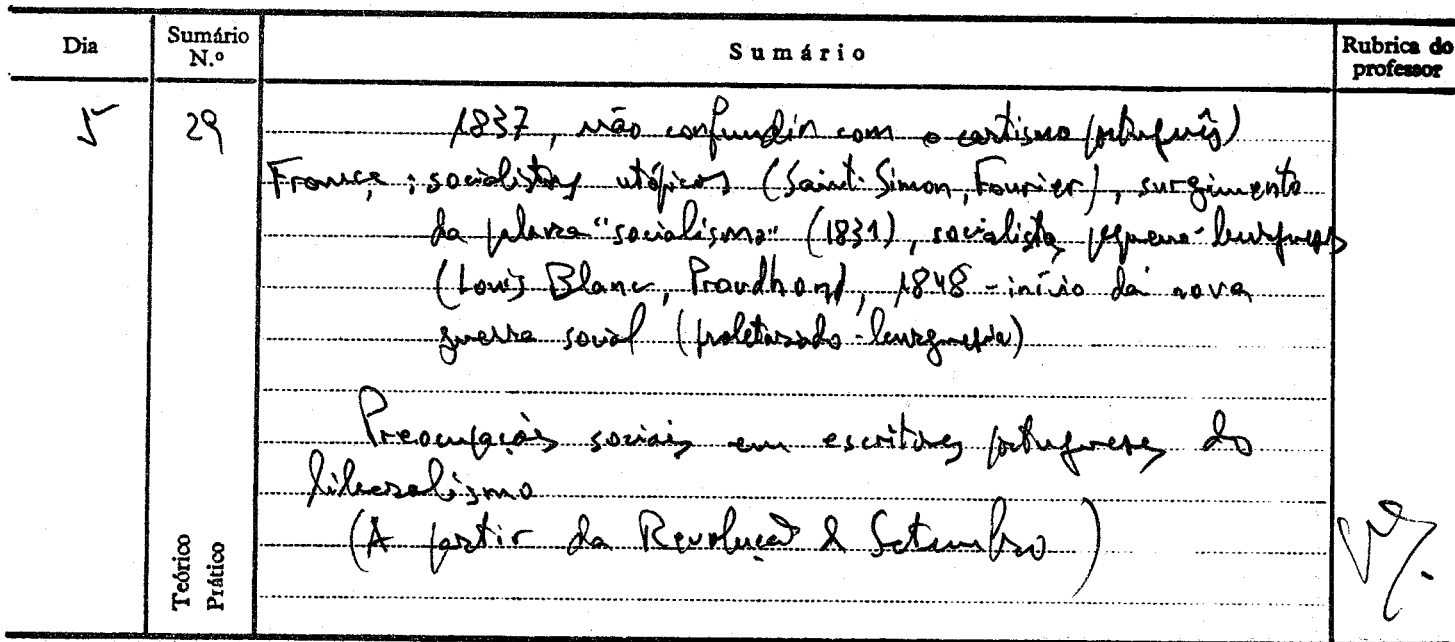 Dia
Sumário N.º
Sumário
Rubrica do professor
5
29
1837, não confundir com o cartismo português)
França: socialistas utópicos (Saint-Simon, Fourier), surgimento
da palavra "socialismo" (1831), socialista pequeno-burguês
(Louis Blanc, Proudhon), 1848 - início da nova
guerra social (proletariado-burguesia)
Preocupações sociais em escritores portugueses do
liberalismo
(A partir da Revolução de Setembro)
Teórico
Prático